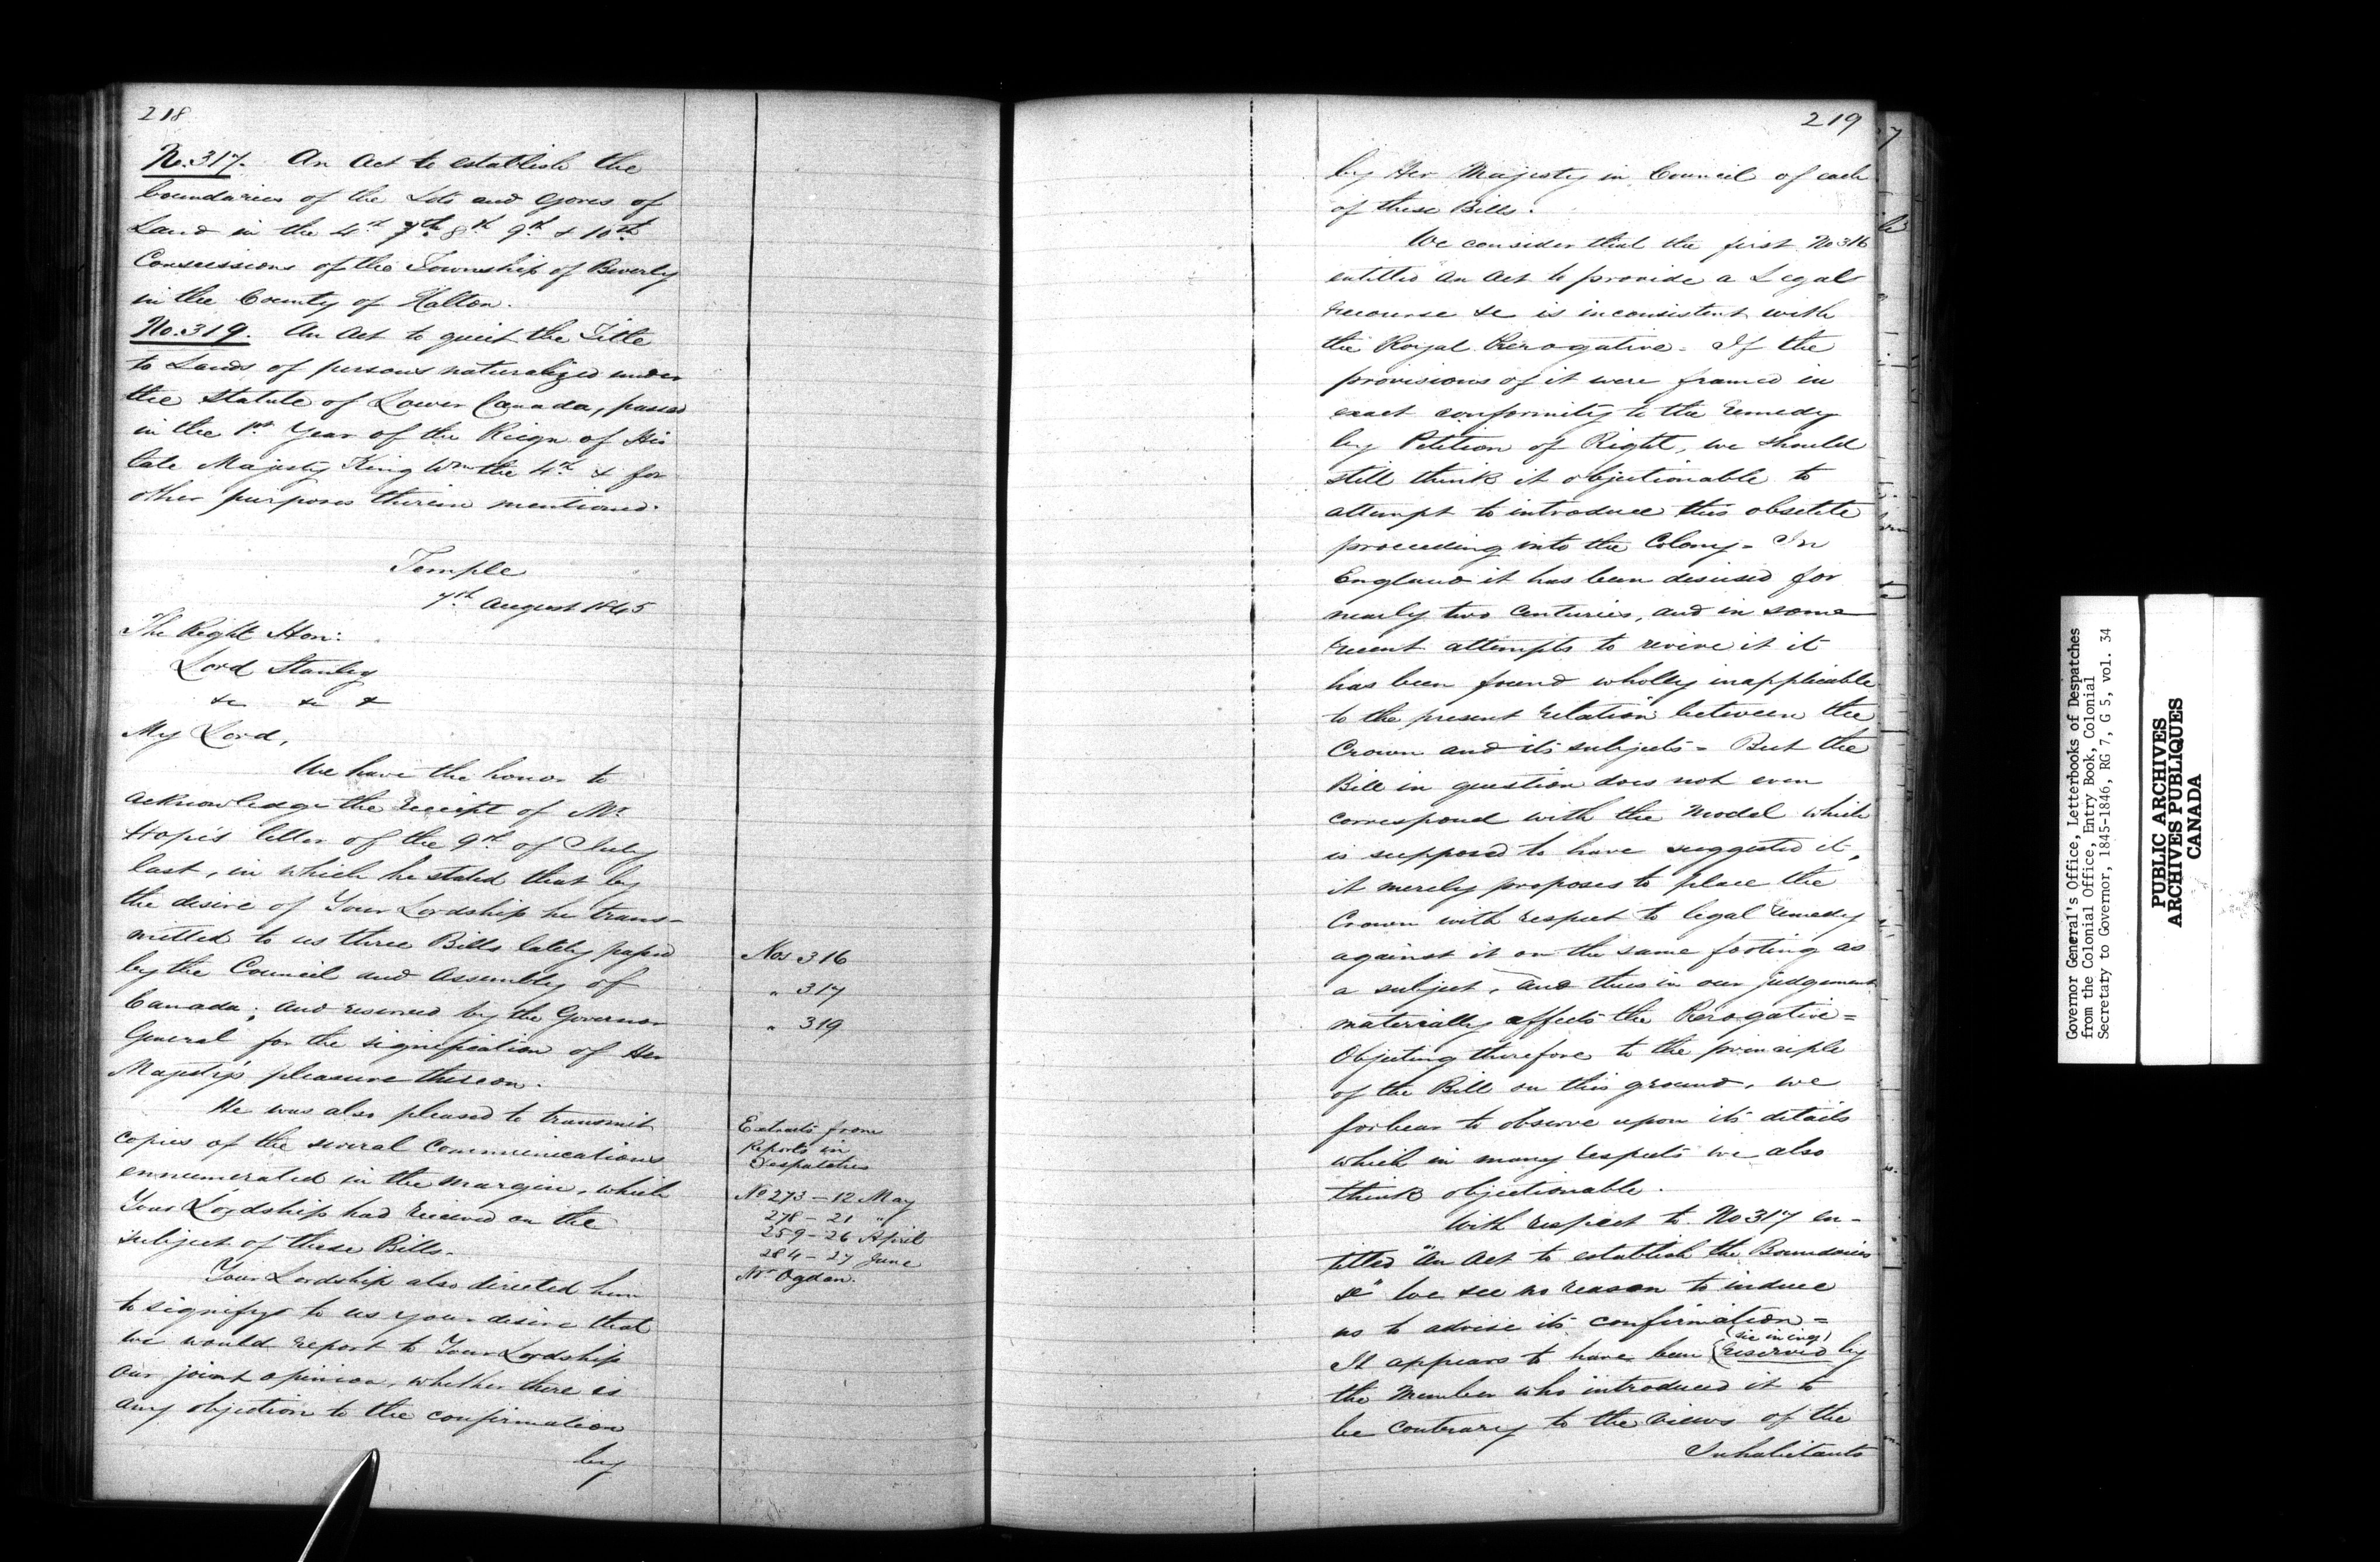 218
No. 317. An Act to establish the
boundaries of the Lots and Gores of
Land in the 4th 7th 8th 9th & 10th
Concessions of the Township of Beverly
in the County of Halton.
No. 319. An Act to quiet the Title
to Lands of persons naturalized under
the Statute of Lower Canada, passed
in the 1st Year of the Reign of His
late Majesty King Wm the 4th & for
other purposes therein mentioned.
Temple
7th August 1845
The Right Hon:
Lord Stanley
&c &c &
My Lord,
We have the honor to
acknowledge the receipt of Mr
Hope's letter of the 9th of July
last, in which he stated that by
the desire of Your Lordship he trans-
mitted to us three Bills lately passed
by the Council and Assembly of
Canada; and reserved by the Governor
General for the signification of Her
Majesty's pleasure thereon.
He was also pleased to transmit
copies of the several Communications
ennumerated in the margin, which
Your Lordship had received on the
subject of these Bills.
Your Lordship also directed him
to signify to us your desire that
we would report to Your Lordship
our joint opinion, whether there is
any objection to the confirmation
by
Nos 316
" 317
" 319
Extracts from
Reports in
Despatches
No 273 - 12 May
278 - 21 "
259 - 26 April
284 - 27 June
Mr Ogden.
219
by Her Majesty in Council of each
of these Bills.
We consider that the first No 316
entitled "An Act to provide a Legal
recourse &c is inconsistent with
the Royal Prerogative - If the
provisions of it were framed in
exact conformity to the remedy
by Petition of Right, we should
still think it objectionable to
attempt to introduce this obsolete
proceeding into the Colony - In
England it has been disused for
nearly two Centuries, and in some
recent attempts to revive it it
has been found wholly inapplicable
to the present relation between the
Crown and its subjects - But the
Bill in question does not even
correspond with the Model which
is supposed to have suggested it,
it merely proposes to place the
Crown with respect to legal remedy
against it on the same footing as
a subject, and thus in our judgement
materially affects the Prerogative =
Objecting therefore to the principle
of the Bill on this ground, we
forbear to observe upon its details
which in many respects we also
think objectionable.
With respect to No 317 en-
titled "An Act to establish the Boundaries
&c" we see no reason to induce
us to advise its confirmation =
(sic in orig)
It appears to have been (reserved by
the Member who introduced it to
be contrary to the views of the
Inhabitants
Governor General's Office, Letterbooks of Despatches
from the Colonial Office, Entry Book, Colonial
Secretary to Governor, 1845-1846, RG 7, G 5, vol. 34
PUBLIC ARCHIVES
ARCHIVES PUBLIQUES
CANADA